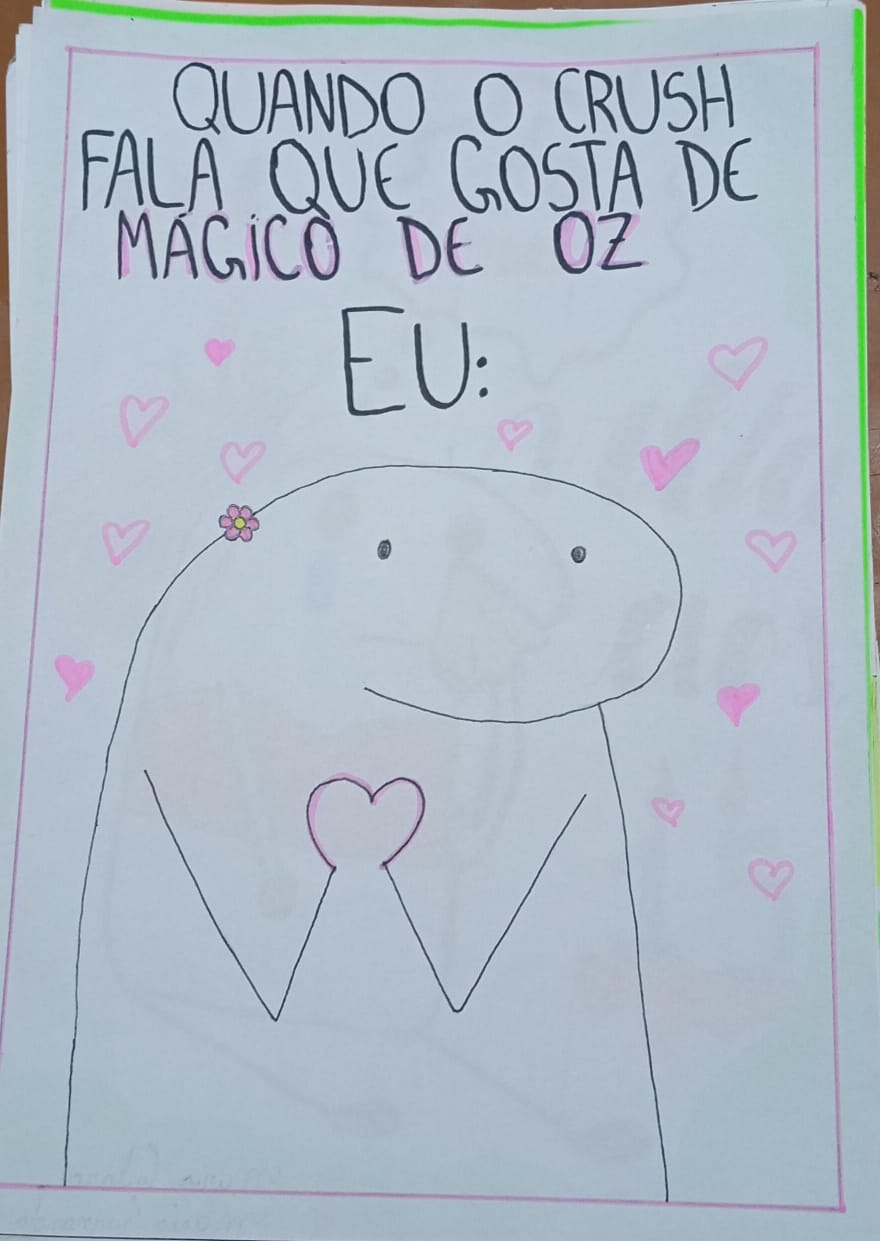 QUANDO O CRUSH
FALA QUE GOSTA DE
MÁGICO DE OZ
EU: